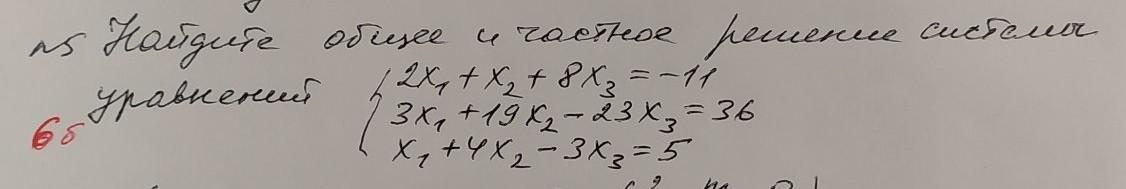 №5 Найдите общее и частное решение системы
уравнений { 2x₁ + x₂ + 8x₃ = -11
3x₁ + 19x₂ - 23x₃ = 36
6б
x₁ + 4x₂ - 3x₃ = 5